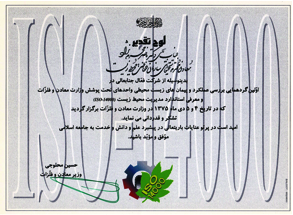 لوح تقدیر
بدینوسیله از شرکت فعال جنابعالی در
اولین گردهمایی بررسی عملکرد و پیمان های زیست محیطی واحدهای تحت پوشش وزارت معادن و فلزات
و معرفی استاندارد مدیریت محیط زیست (ISO-14000)
که در تاریخ ۴ و ۵ دی ماه ۱۳۷۵ در وزارت معادن و فلزات برگزار گردید
تشکر و قدردانی می نماید.
امید است در پرتو عنایات باریتعالی در پیشبرد علم و دانش و خدمت به جامعه اسلامی
موفق و مؤید باشید.
حسین محلوجی
وزیر معادن و فلزات
ISO 14000